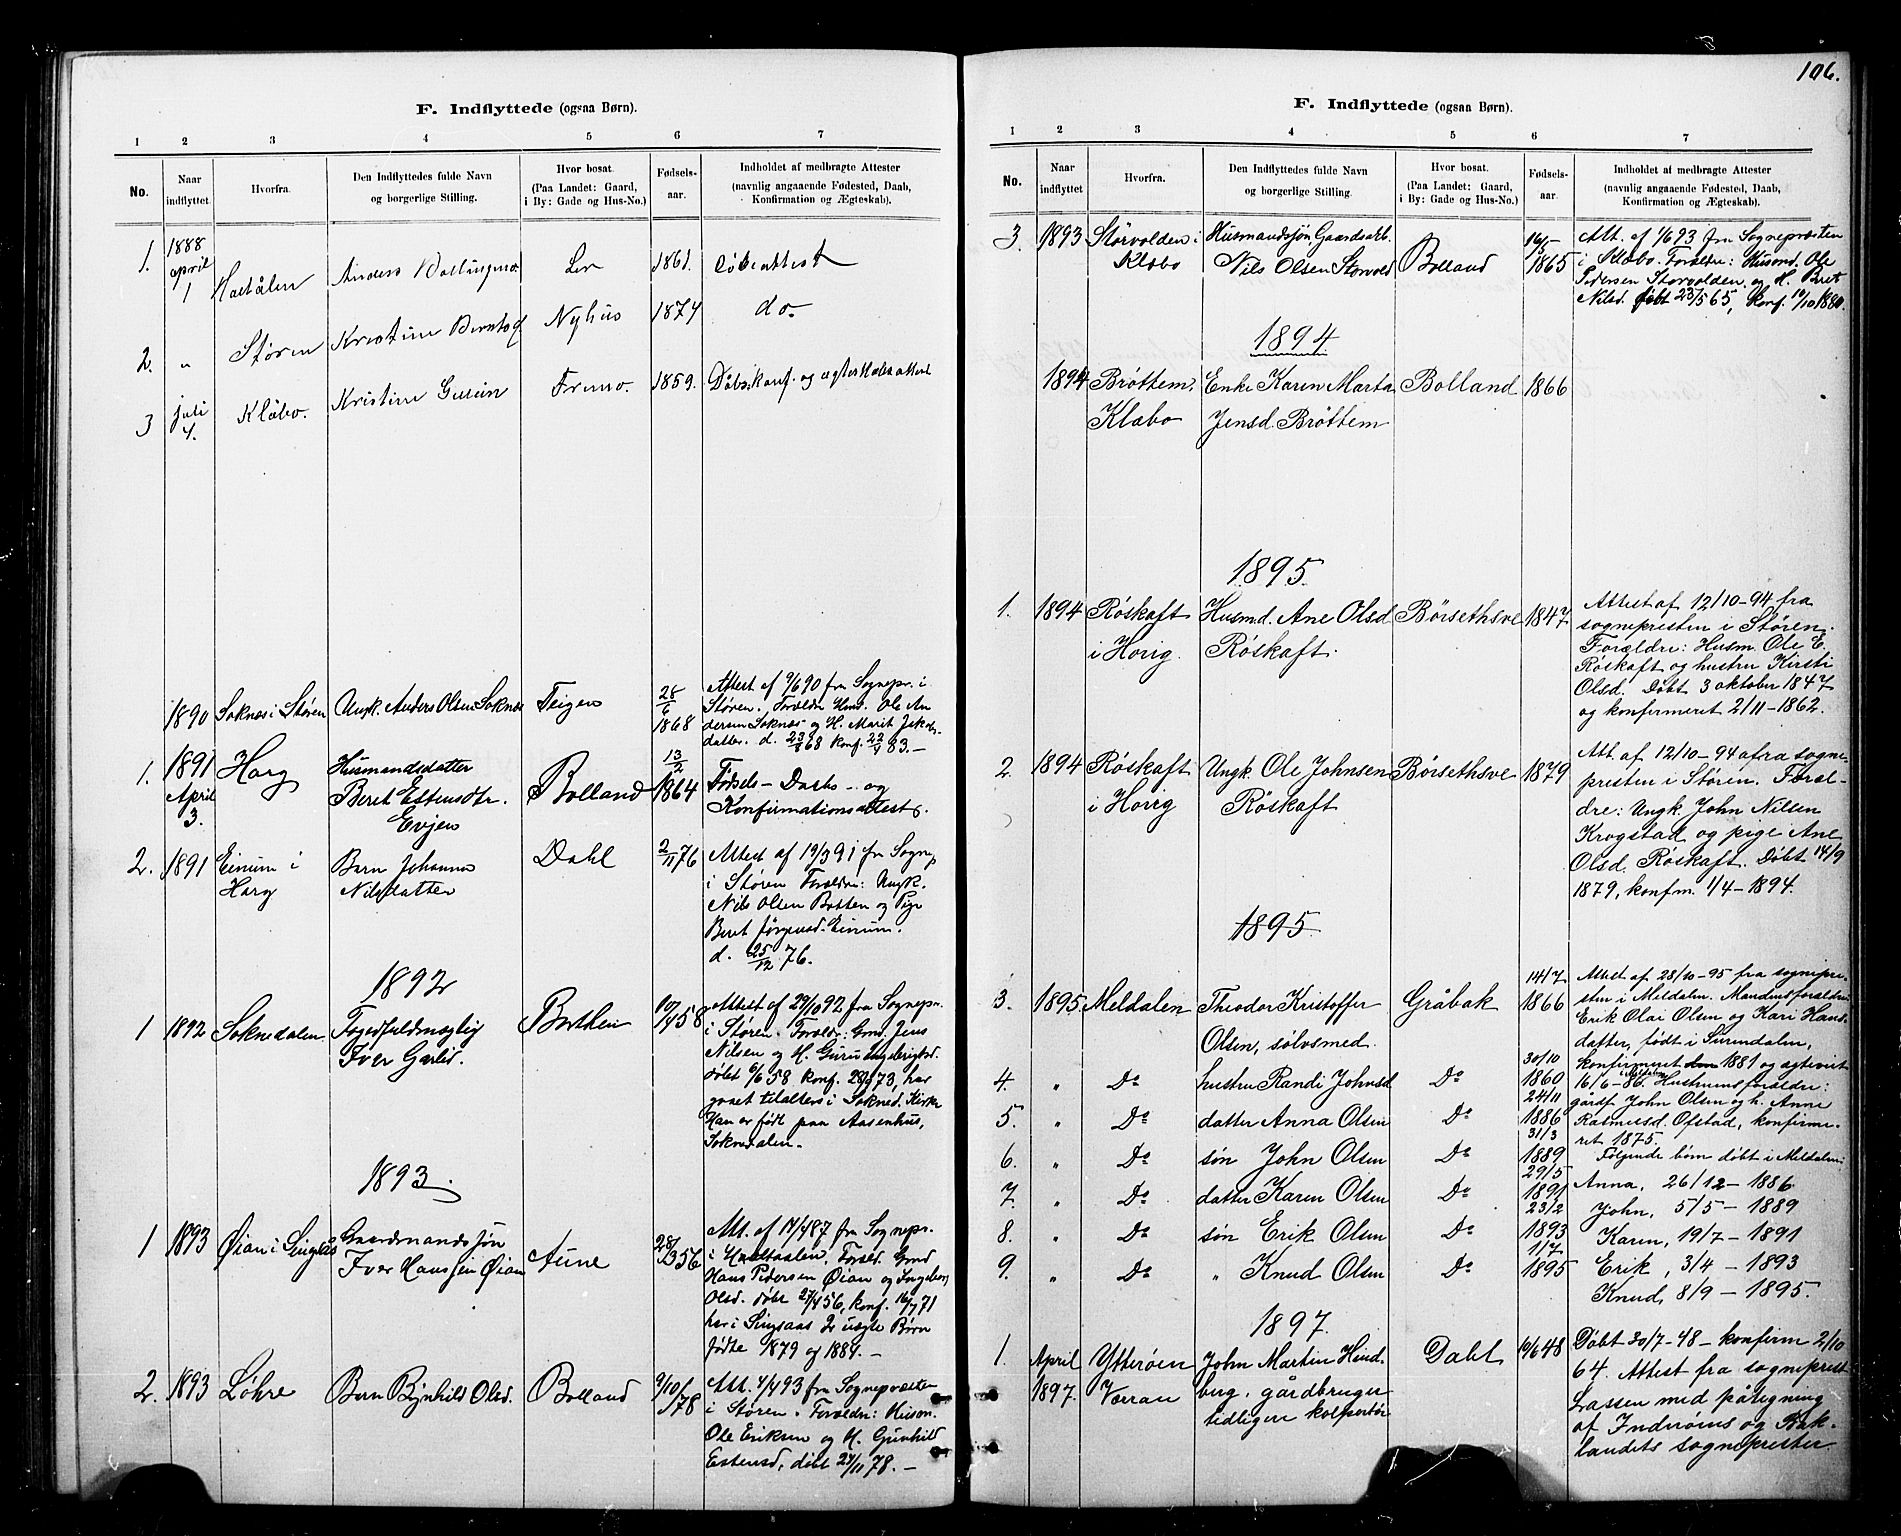 F. Indflyttede (ogsaa Børn).
1 2 3 4 5 6 7
No.
Naar
indflyttet.
Hvorfra.
Den Indflyttedes fulde Navn
og borgerlige Stilling.
Hvor bosat.
(Paa Landet: Gaard,
i By: Gade og Hus-No.)
Fødsels-
aar.
Indholdet af medbragte Attester
(navnlig angaaende Fødested, Daab,
Konfirmation og Ægteskab).
1. 1888 april 1 Holtålen Anders Ler 1861. Dåbsattest
2. " Støren Kristine Berntsd Nyhus 1874 do.
3 juli 4. Klæbo. Kristine Fremo. 1859. Dåbs, konf. og ægteskabsattest
1890 Soknæs i Støren Ungk. Anders Olsen Soknæs Teigen 28/6 1868
Attest af 9/6 90 fra Sognepr. i
Støren. Forældre Hmd. Ole An
dersen Soknæs og H. Marit
datter. d. 23/8 68 konf. 83.-
1. 1891 April 3. Horg Husmandsdatter
Beret Estensdtr.
Evjen
Bolland 13/2 1864
Fødsels- Daabs- og
Konfirmationsattest.
2. 1891 Einum i
Horg
Barn Johanna
Nilsdatter
Dahl 2/11 76
Attest af 19/3 91 fr. Sognep.
i Støren Forældre: Ungk.
Nils Olsen Botten og Pige
Beret Jørgensd. Einum.
d. 25/12 76.
1892
1 1892 Soknedalen Fogedfuldmægtig
Iver Garlid.
Borthen 58
Attest af 29/10 92 fra Sognepr.
i Støren. Forældr: Gmd. Jens
Nilsen og H. Guru Ingebrigtsd.
døbt 6/6 58 konf. 73, har
gaaet tilalters i Sokned. Kirke
Han er født paa Aasenhus,
Soknedalen.
1893.
1 1893 Øian i Singsås Gaardmandssøn
Iver Hanssen Øian
Aune 56
Att. af 17/4 87 fra Sognepr.
i Holtaalen, Foræld. Gmd
Hans Pedersen Øian og Ingeborg
Olsd. døbt 27/4 56, konf. 16/7 71
har i Singsaas 2 uægte Børn
fødte 1879 og 1884.-
2. 1893 Løhre Barn Brynhild Olsd. Bolland 9/10 78
Att. 4/4 93 fra Sognepræsten
i Støren. Forældre: Husm.
Ole Eriksen og H. Gunhild
Estensd, døbt 24/11 78.-
106.
F. Indflyttede (ogsaa Børn).
1 2 3 4 5 6 7
No.
Naar
indflyttet
Hvorfra.
Den Indflyttedes fulde Navn
og borgerlige Stilling.
Hvor bosat.
(Paa Landet: Gaard,
i By: Gade og Hus-No.)
Fødsels-
aar.
Indholdet af medbragte Attester
(navnlig angaaende Fødested, Daab,
Konfirmation og Ægteskab).
3. 1893 Storvolden i
Klæbo
Husmandssøn, Gaardsarb.
Nils Olsen Storvold
Bolland 16/5 1865
Att. af 1/6 93 fra Sognepræsten
i Klæbo. Forældre: Husmd. Ole
Pedersen Storvolden og H. Beret
Nilsd. født 23/5 65, konf. 10/10 1880.
1894.
1894 Brøttem,
Klæbo
Enke Karen Marta
Jensd. Brøttem
Bolland 1866
1895.
1. 1894 Røskaft
i Horig.
Husmd. Ane Olsd
Røskaft.
Børsethsve 1847
Attest af 12/10-94 fra
sognepresten i Støren.
Forældre: Husm. Ole E.
Røskaft og hustru Kirsti
Olsd. Døbt 3 oktober 1847
og konfirmeret 2/11-1862.
2. 1894 Røskaft
i Horig
Ungk. Ole Johnsen
Røskaft
Børsethsve 1879
Att. af 12/10-94 afra sogne
presten i Støren. Foræl-
dre: Ungk. John Nilsen
Krogstad og pige Ane
Olsd. Røskaft. Døbt 14/9
1879, konfm. 1/4-1894.
1895.
3. 1895. Meldalen Theodor Kristoffer
Olsen, sølvsmed.
Gråbak 14/7 1866
4. " Do hustru Randi Johnsd Do 30/10 1860
5. " Do datter Anna Olsen Do 24/11 1886
6. " Do søn John Olsen Do 31/3 1889
7. " Do datter Karen Olsen Do 29/5 1891
8. " Do søn Erik Olsen Do 23/2 1893
9. " Do " Knud Olsen Do 1/7 1895
Attest af 28/10-95 fra sognepre-
sten i Meldalen. Mandens forældre
Erik Olai Olsen og Kari Hans-
datter, født i Surendalen,
konfirmeret 1881 og ægteviet
16/6-86 i Meldalen. Hustruens forældre:
gårdf. John Olsen og h. Anne
Rasmusd. Ofstad, konfirme-
ret 1875.
Følgende børn døbt i Meldalen:
Anna, 26/12-1886
John, 5/5-1889
Karen, 19/7-1891
Erik, 3/4-1893
Knud, 8/9-1895.
1897.
1. April
1897.
Ytterøen
Værran
John Martin Hind-
berg, gårdbruger
tidligere kolportør
Dahl 10/6 48
Døbt 30/7-48-konfirm 2/10
64. Attest fra sogneprest
Lassen med påtegning
af Inderøens og Bak-
landets sogneprester